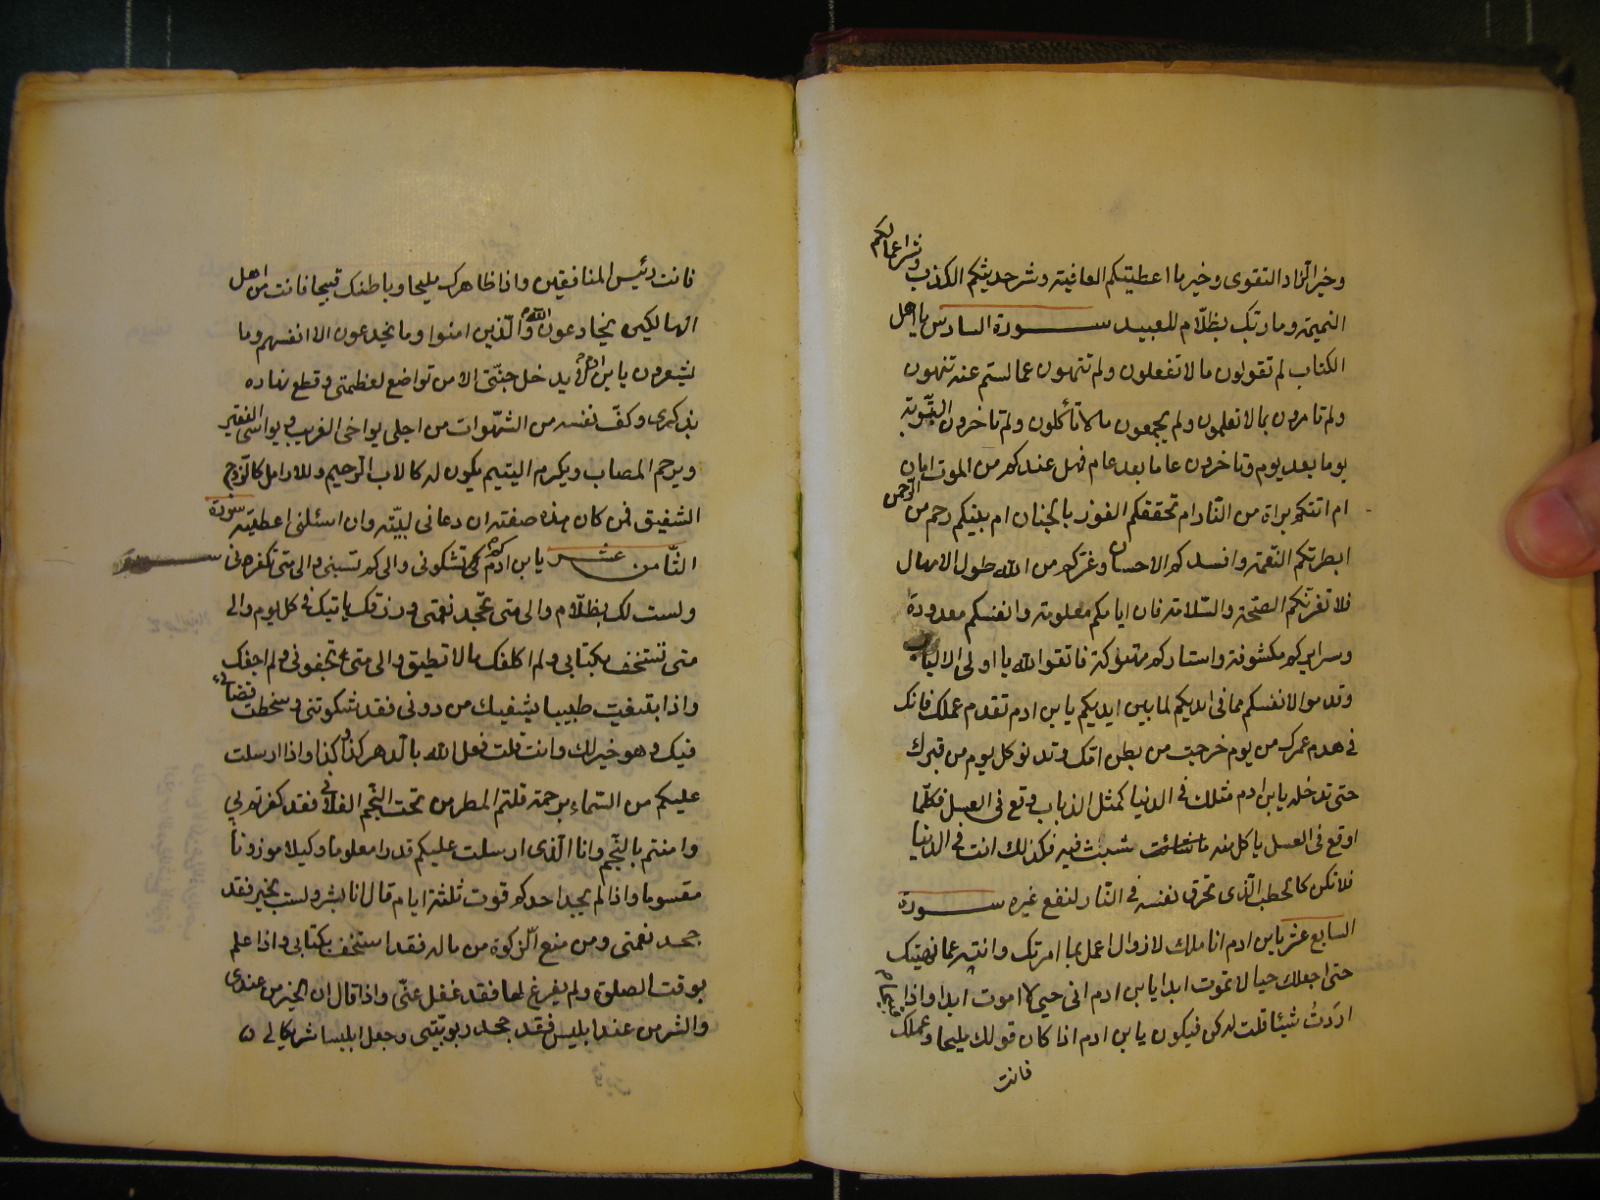 وخير الزاد التقوى وخير ما اعطيتكم العافية وشر حديثكم الكذب وشر اعمالكم
النميمة وما ربك بظلّام للعبيد ســورة السادس يا اهل
الكتاب لم تقولون ما لا تفعلون ولم تنهون عما لستم عنه تنهون
ولم تامرون بما لا تعلمون ولم تجمعون ما لا تأكلون ولم تاخرون التّوبة
يوما بعد يوم وتاخرون عاما بعد عام فهل عندكم من الموت امان
ام اتتكم براة من النّار ام تحققكم الفوز بالجنان ام بينكم رحم من الرّحمن
ابطرتكم النّعمة وافسدكم الاحسان وغركم من الله طول الامهال
فلا تغرنّكم الصّحة والسّلامة فان ايامكم معلومة وانفسكم معدودة
وسرايركم مكشوفة واستاركم مهتوكة فاتقوا الله يا اولى الالباب
وقدموا لانفسكم مما فى ايديكم لما بين ايديكم يا بن ادم تقدم عملك فانك
فى هدم عمرك من يوم خرجت من بطن امّك وتدنو كل يوم من قبرك
حتى تدخله يا بن ادم مثلك فى الدنيا كمثل الذباب وقع فى العسل فكلّما
اوقع فى العسل يا كل منه شبث فيه فكذلك انت فى الدنيا
فلا تكن كالحطب الّذى تحرق نفسه فى النّار لنفع غيره ســورة
السابع عشر يا بن ادم انا ملك لا زوال اعمل بما امرتك وانته عما نهيتك
حتى اجعلك حيا لا تموت ابدا يا بن ادم انى حيى لا اموت ابدا واذا
اردتُ شيئا قلت له كن فيكون يا بن ادم اذا كان قولك مليحا وعملك
فانت
فانت رئيس المنافقين واذا ظاهرك مليحا وباطنك قبيحا فانت من اهل
الهالكين يخادعون اللّه والّذين امنوا وما يخدعون الا انفسهم وما
يشعرون يا بن ادم لا يدخل جنّتى الا من تواضع لعظمتى وقطع نهاره
بذكرى وكفّ نفسه من الشهوات من اجلى يواخى الغريب ويواسى الفقير
ويرحم المصاب ويكرم اليتيم يكون له كالاب الرّحيم وللارامل كالزّوج
الشفيق فمن كان هذه صفته ان دعانى لبيّته وان اسئلنى اعطيته سورة
الثّامن عشر يا بن ادم كم تشكونى والى كم تسبنى والى متى تكفرنى
ولست لك بظلّام والى متى تجحد نعمتى ورزقك ياتيك فى كل يوم والى
متى تستخف بكتابى ولم اكلفك ما لا تطيق والى متى تجفونى ولم اجفك
واذا بقيت طبيبا يشفيك من دونى فقد شكوتنى وسخطت قضائى
فيك وهو خير لك وانت قلت فعل الله بالدهر كذا وكذا واذا ارسلت
عليكم من السّماء برحمة قلتم المطر من تحت النّجم الفلانى فقد كفرتم بي
وامنتم بالنّجم وانا الّذى ارسلت عليكم قدرا معلوما وكيلا موزوناً
مقسوما واذا لم يجد احدكم قوت ثلثة ايام قال انا بشر ولست بخير فقد
جحد نعمتى ومن منع الزكوة من ماله فقد استخف بكتابى واذا علم
بوقت الصلوة ولم يفرغ لها فقد غفل عنّى واذا قال ان الخير من عندى
والشر من عند ابليس فقد جحد ربوبيّتى وجعل ابليسا شريكا لى